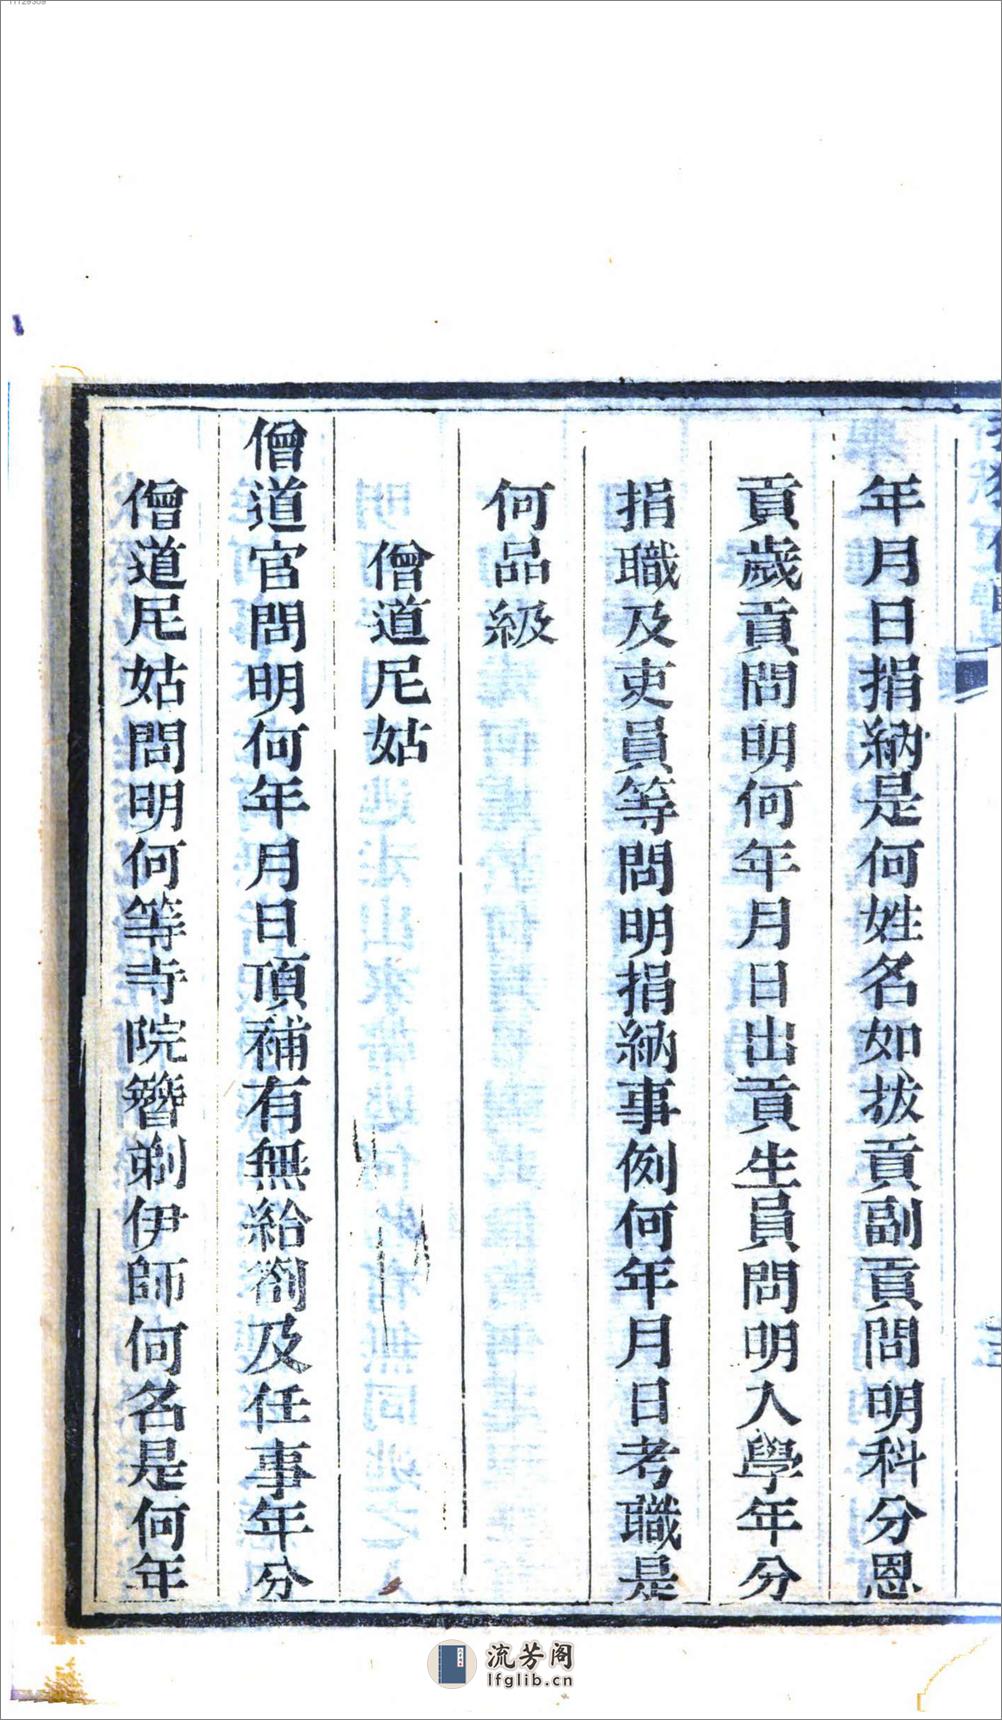 年月日捐納是何姓名如拔貢副貢問明科分恩
貢歲貢問明何年月日出貢生員問明入學年分
捐職及吏員等問明捐納事例何年月日考職是
何品級
僧道尼姑
僧道官問明何年月日頂補有無給劄及任事年分
僧道尼姑問明何等寺院簪剃伊師何名是何年
流芳阁
lfglib.cn